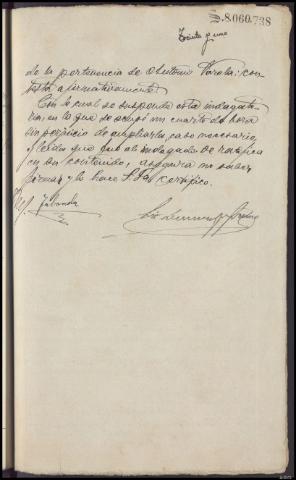 8.060.738
Treinta y uno
de la pertenencia de Obertomo Varela: con-
testa afirmativamente.
Con lo cual se suspende esta indagato-
ria, en la que se ocupó un cuarto de hora
sin perjuicio de ampliarla caso necesario,
y leída que fué al indagado se ratifica
en su contenido, asegura no saber
firmar y lo hace S. Sª certifico.